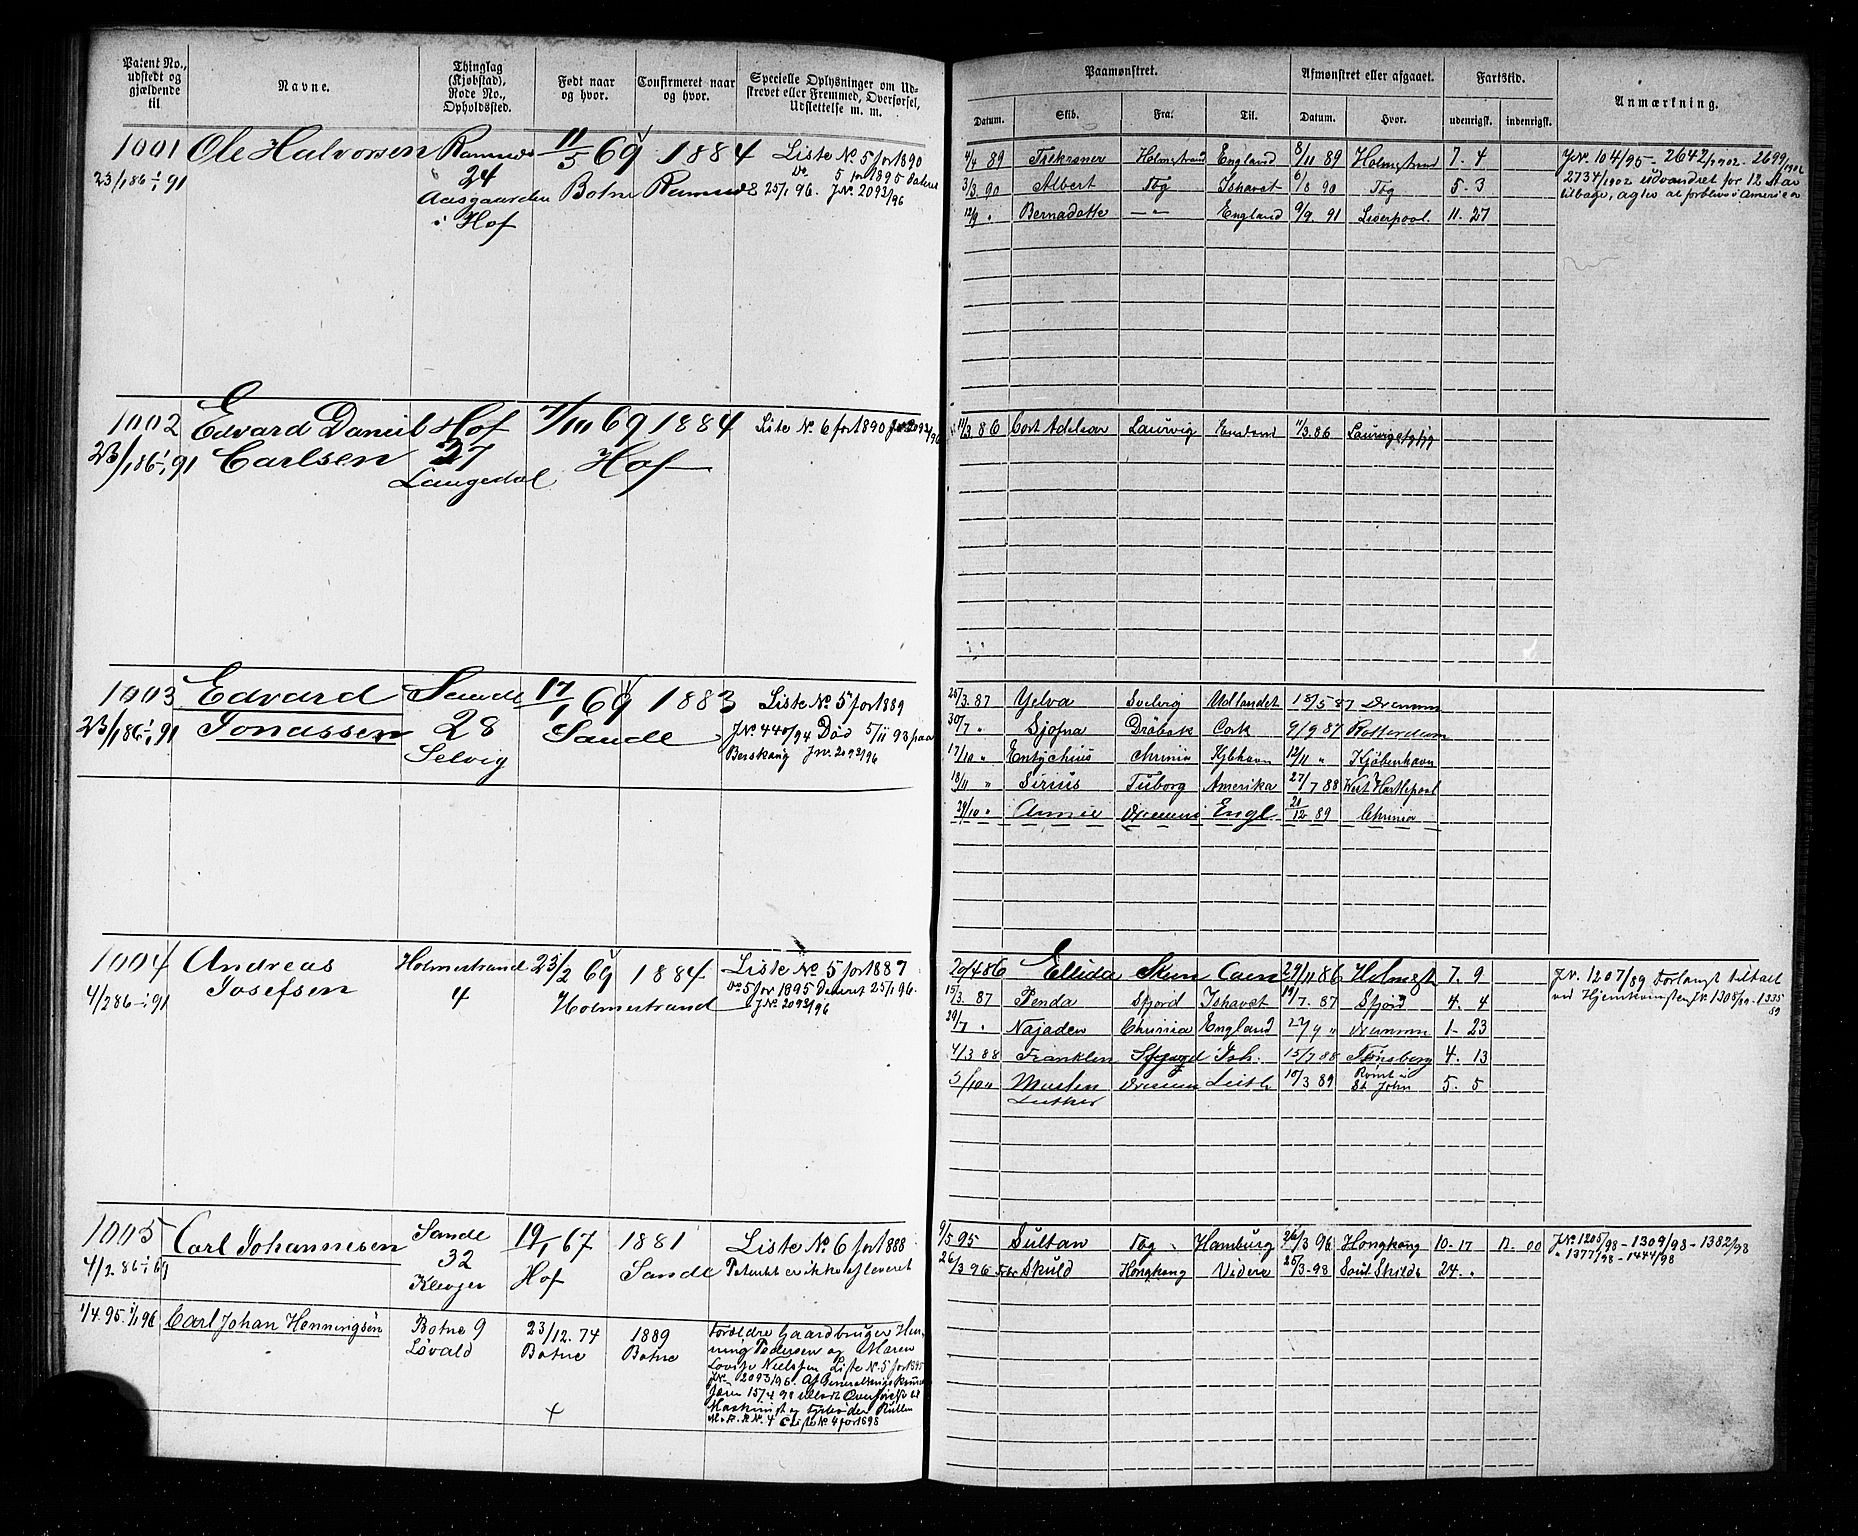 Patent No., udstedt og gjældende til
Navne.
Thinglag (Kjøbstad), Rode No., Opholdssted.
Født naar og hvor.
Confirmeret naar og hvor.
Specielle Oplysninger om Udskrevet eller Fremmed, Overførsel, Udslettelse m. m.
Paamønstret.
Afmønstret eller afgaaet.
Fartstid.
Anmærkning.
Datum.
Skib.
Fra:
Til.
Datum.
Hvor.
udenrigsk.
indenrigsk.
1001 Ole Halvorsen Ramnes 11/5 69 1884 Liste No 5 for 1890
23/1 86 - 1/1 91 24 Aasgaarden i Hof Botne Ramnes Do 5 for 1895 Dateret 25/1 96. J.No. 2093/96
4/4 89 Trekroner Holmestrand England 8/11 89 Holmestrand 7. 4
3/3 90 Albert Tbg Ishavet 6/8 90 Tbg 5. 3
12/9 " Bernadotte — " — England 9/9 91 Liverpool. 11. 27
J.No. 104/95 - 2642/1902 - 2699/1902
2734/1902 udvandret for 12 Aar
tilbage, agter at forblive i Amerika
1002 Edvard Daniel Hof 7/10 69 1884 Liste No 6 for 1890 2093/96
23/1 86 - 1/1 91 Carlsen 27 Hof
Langedal
11/3 86 Cort Adelaar Laurvig 11/3.86 Laurvig
1003 Edvard Sande 17/1 69 1883 Liste No 5 for 1889
23/1 86 - 1/1 91 Jonassen 28 Sande J.No. 440/94 Død 5/11 93 paa
Selvig J.No. 2093/96
25/3 87 Yelva Svelvig Udlandet 18/5 87 Drammen
30/7 " Sjofna Drøbak Cork 9/9 87 Rotterdam
17/10 " Entychius Chrinia Kjbhavn 12/11 " Kjøbenhavn
18/11 " Sirius Tuborg Amerika 27/7 88 West Hartlepool
29/10 " Annie Drammen Engl 21/12 89 Chrinia
1004 Andreas Holmestrand 23/2 69 1884 Liste No 5 for 1887
4/2 86 - 1/1 91 Josefsen 4 Holmestrand Do 5 for 1895 Dateret 25/1 96.
J.No. 2093/96
20/4 86 Ellida Skien Caen 29/11 86 Holmest 7. 9
15/3. 87 Penda Sfjord Ishavet 19/7. 87 Sfjord 4. 4
29/7 " Najaden Chrinia England 27/9 " Drammen 1- 23
4/3 88 Franklin Ish. 15/7 88 Tønsberg 4. 13
5/10 " Morten Luther Drammen Leith 10/3 89 Rømt i St John 5. 5
J.No. 1207/89 Forlangt tiltalt
ved Hjemkomsten J.No. 1308/89 - 1335/89
1005 Carl Johannesen Sande 19/1 67 1881 Liste No 6 for 1888
4/2. 86 - 32 Klevjer Hof Sande Patentet er ikke afleveret
9/5 95 Sultan Tbg. Hamburg 26/3 96 Hongkong 10. 17 12. 00
26/3 96 Forbr Skuld Hongkong Videre 25/3-98 24. "
J.No. 1205/98 - 1309/98 - 1382/98
" 1377/98 - 1444/98
1/4. 95. 1/1 96 Carl Johan Henningsen Botne 9 23/12. 74 1889 Forældre Gaardbruger Hen-
Løvald Botne Botne ning Pedersen og Maren
Lovise Nielsen. Liste No 5 for 1895
J.No. 2093/96. Af Generalkrigskommis-
Overførelse til
Maskinist og Fyrbøder Rullen
Liste No 4 for 1898